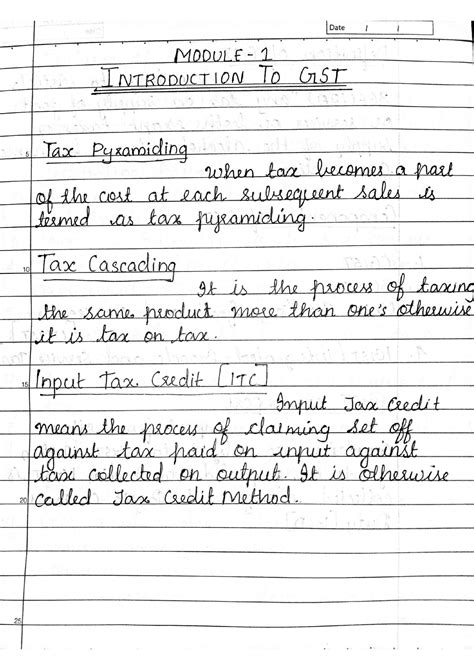 Date / /
MODULE - 1
INTRODUCTION TO GST
5 Tax Pyramiding
When tax becomes a part
of the cost at each subsequent sales is
termed as tax pyramiding.
10 Tax Cascading
It is the process of taxing
the same product more than one's otherwise
it is tax on tax.
15 Input Tax Credit [ITC]
Input Tax Credit
means the process of claiming set off
against tax paid on input against
tax collected on output. It is otherwise
20 called Tax Credit Method.
25